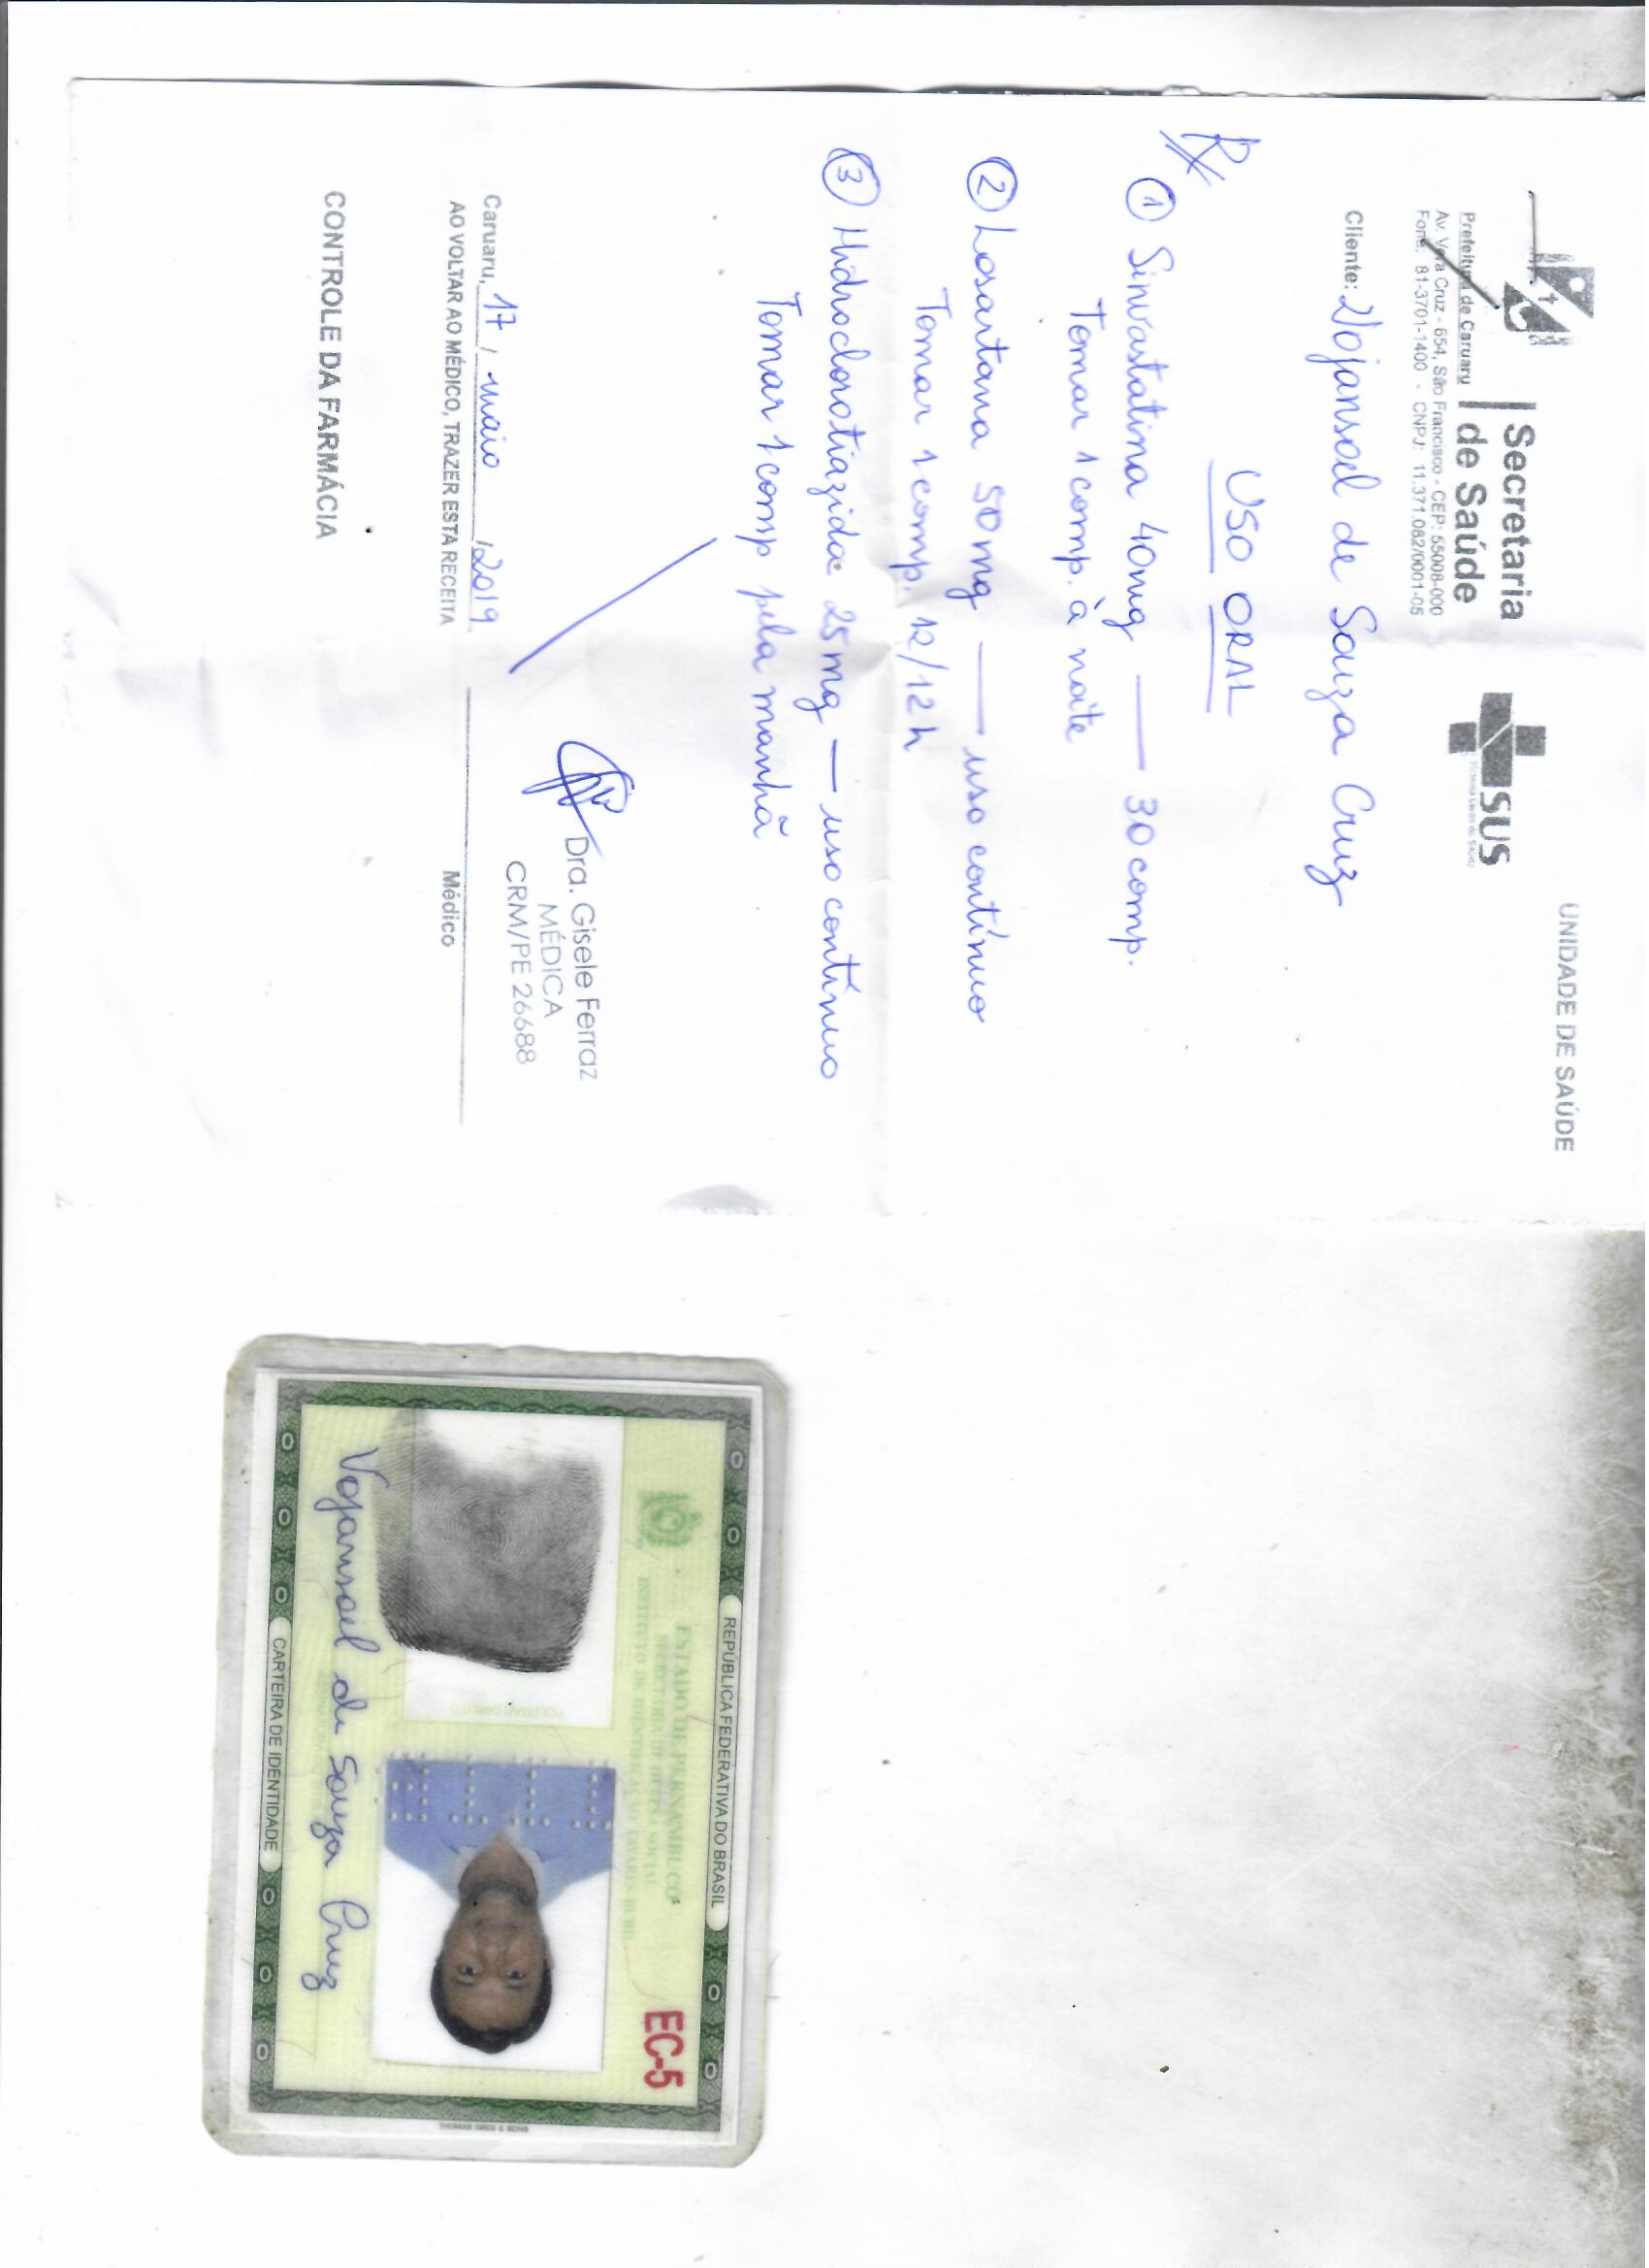 UNIDADE DE SAÚDE
Secretaria
de Saúde
SUS
Prefeitura de Caruaru
Av. Vera Cruz - 654, São Francisco - CEP: 55008-000
Fone: 81-3701-1400 - CNPJ: 11.371.082/0001-05
Cliente: Vojansoel de Souza Cruz
USO ORAL
① Sinvastatina 40mg — 30 comp.
Tomar 1 comp. à noite
② Losartana 50mg — uso contínuo
Tomar 1 comp. 12/12h
③ Hidroclorotiazida 25mg — uso contínuo
Tomar 1 comp pela manhã
Dra. Gisele Ferraz
MÉDICA
CRM/PE 26688
Caruaru, 17 / maio /2019
Médico
AO VOLTAR AO MÉDICO, TRAZER ESTA RECEITA
CONTROLE DA FARMÁCIA
REPÚBLICA FEDERATIVA DO BRASIL
ESTADO DE PERNAMBUCO
SECRETARIA DE DEFESA SOCIAL
INSTITUTO DE IDENTIFICAÇÃO TAVARES BURIL
EC-5
POLEGAR DIREITO
de Souza Cruz
CARTEIRA DE IDENTIDADE
THOMAS GREG & SONS